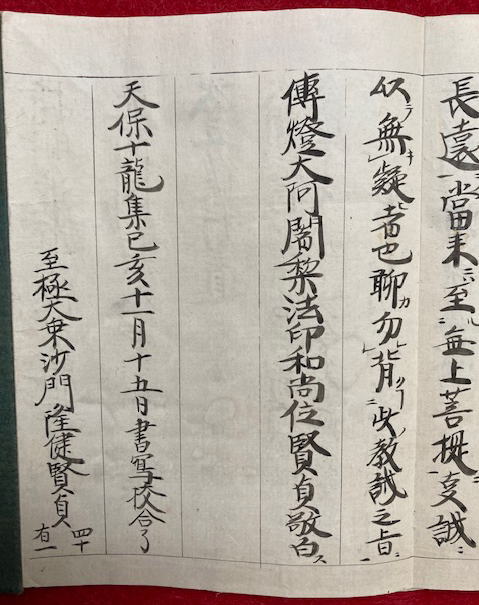 長遠一當来ニ至無上菩提誠ニ
以無疑者也聊カ勿背此教誡之旨
傳燈大阿闍梨法印和尚位賢貞敬白ス
天保十龍集己亥十一月十五日書寫校合了
至極大乗沙門隆健賢貞
四十有一